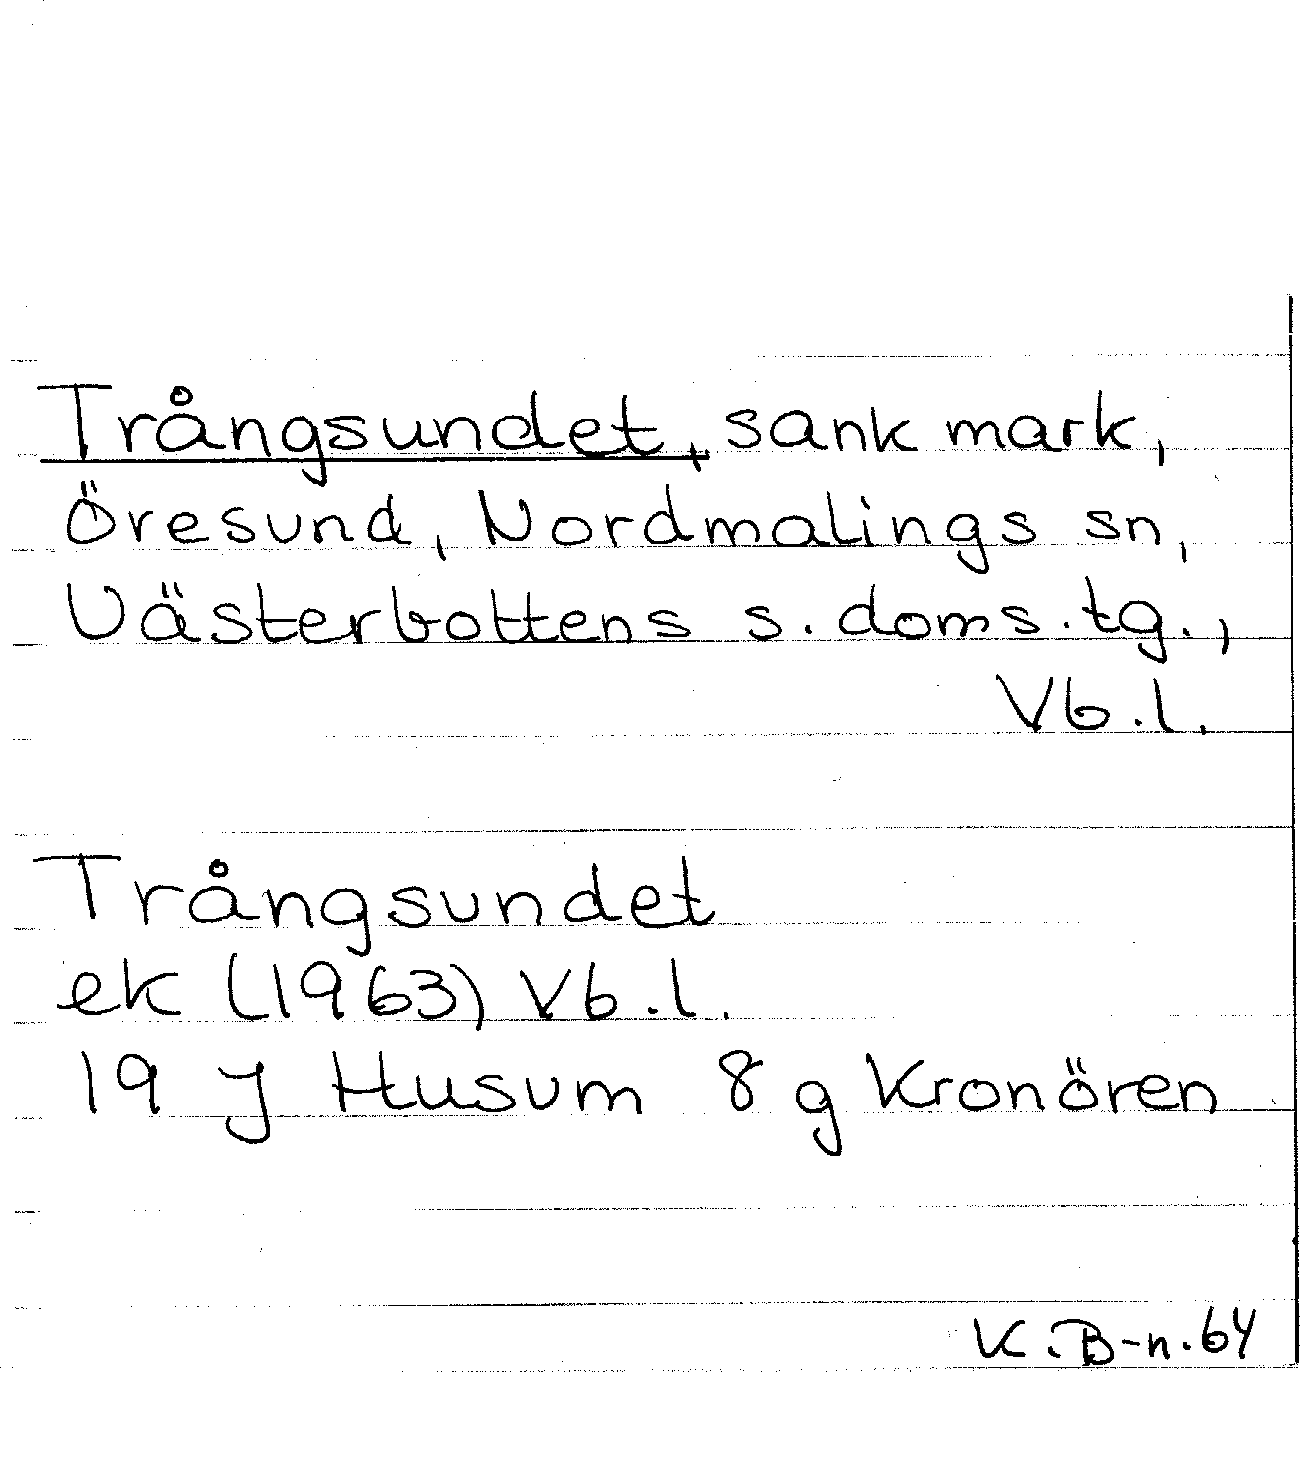 Trångsundet, sank mark,
Öresund, Nordmalings sn,
Västerbottens s. doms. tg.,
Vb. l.
Trångsundet
ek (1963) Vb. l.
19 J Husum 8 g Kronören
K. B-n. 64